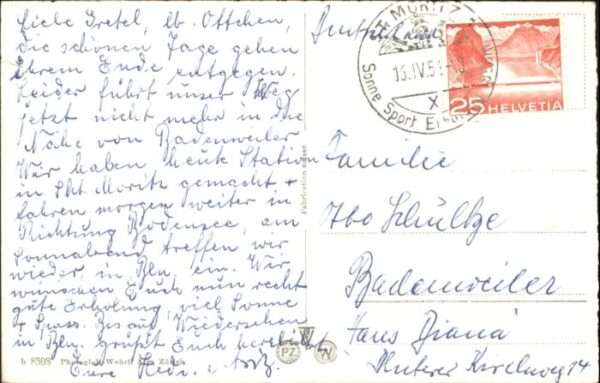 Liebe Gretel, lb. Ottchen,
die schönen Tage gehen
ihrem Ende entgegen.
Leider führt unser Weg
jetzt nicht mehr in die
Nähe von Badenweiler
Wir haben heute Station
in St. Moritz gemacht, +
fahren morgen weiter in
Richtung Bodensee, am
Sonnabend treffen wir
wieder in Bln. ein. Wir
wünschen Euch nun recht
gute Erholung viel Sonne
+ Spass. Bis auf Wiedersehen
in Bln. grüßt Euch herzlichst
Eure
b 8508 Photoglob-Wehrli Zürich
Fabrication suisse
PZ
ST. MORITZ
13.IV.51
X
Sonne Sport
25 HELVETIA
Deutschland
Familie
Ibo Schultze
Badenweiler
Haus Diana
Unterer Kirchweg 14